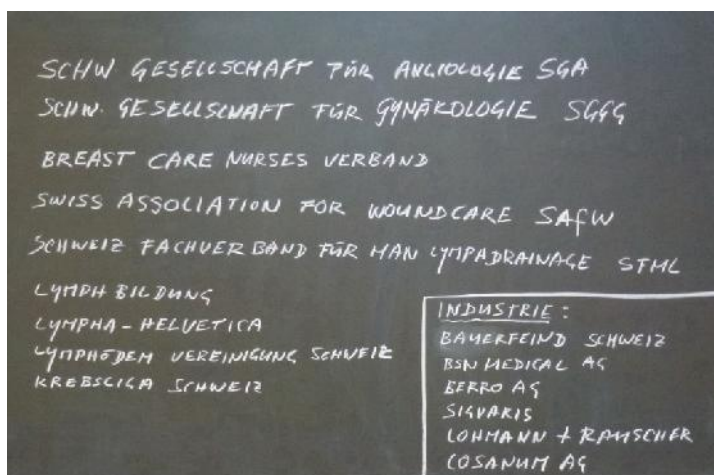 SCHW GESELLSCHAFT FÜR ANGIOLOGIE SGA
SCHW. GESELLSCHAFT FÜR GYNÄKOLOGIE SGGG
BREAST CARE NURSES VERBAND
SWISS ASSOCIATION FOR WOUNDCARE SAfW
SCHWEIZ FACHVERBAND FÜR MAN LYMPADRAINAGE STML
LYMPH BILDUNG
LYMPHA-HELVETICA
LYMPHÖDEM VEREINIGUNG SCHWEIZ
KREBSLIGA SCHWEIZ
INDUSTRIE:
BAUERFEIND SCHWEIZ
BSN MEDICAL AG
BERRO AG
SIGVARIS
LOHMANN + RAUSCHER
COSANUM AG